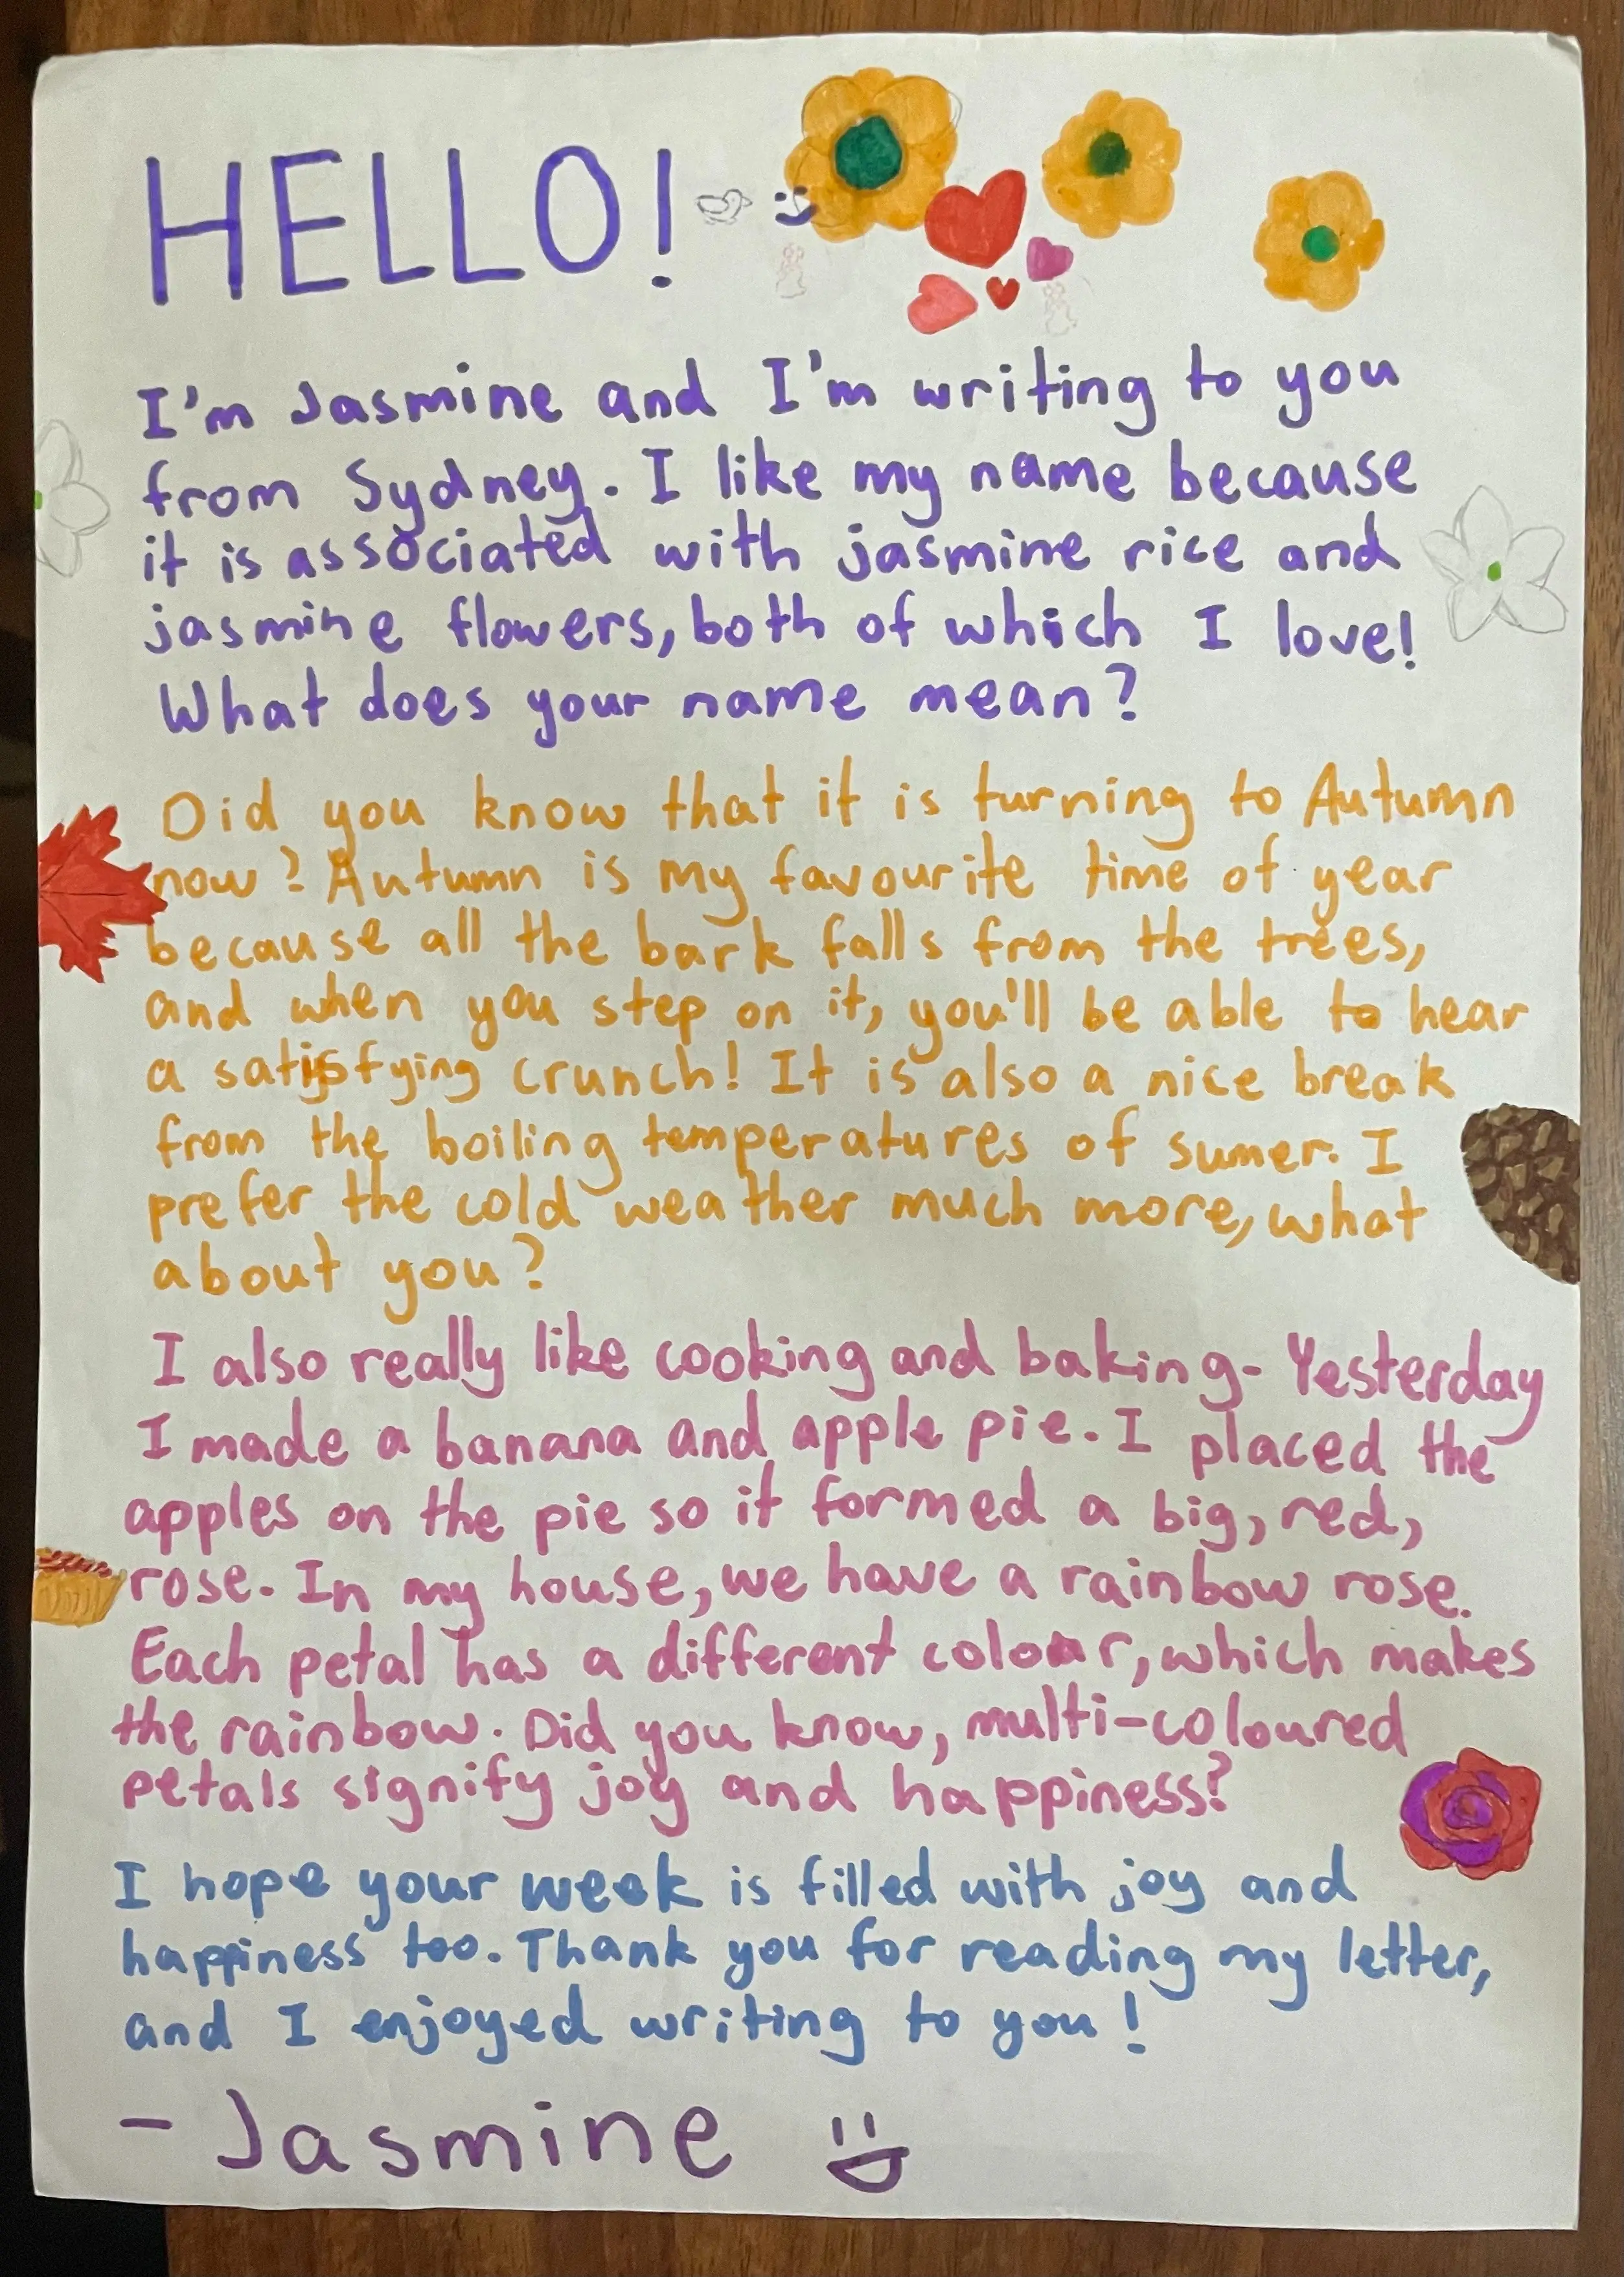 HELLO!
I'm Jasmine and I'm writing to you
from Sydney. I like my name because
it is associated with jasmine rice and
jasmine flowers, both of which I love!
What does your name mean?
Did you know that it is turning to Autumn
now? Autumn is my favourite time of year
because all the bark falls from the trees,
and when you step on it, you'll be able to hear
a satisfying crunch! It is also a nice break
from the boiling temperatures of sumer. I
prefer the cold weather much more, what
about you?
I also really like cooking and baking- Yesterday
I made a banana and apple pie. I placed the
apples on the pie so it formed a big, red,
rose. In my house, we have a rainbow rose.
Each petal has a different colour, which makes
the rainbow. Did you know, multi-coloured
petals signify joy and happiness?
I hope your week is filled with joy and
happiness too. Thank you for reading my letter,
and I enjoyed writing to you!
- Jasmine